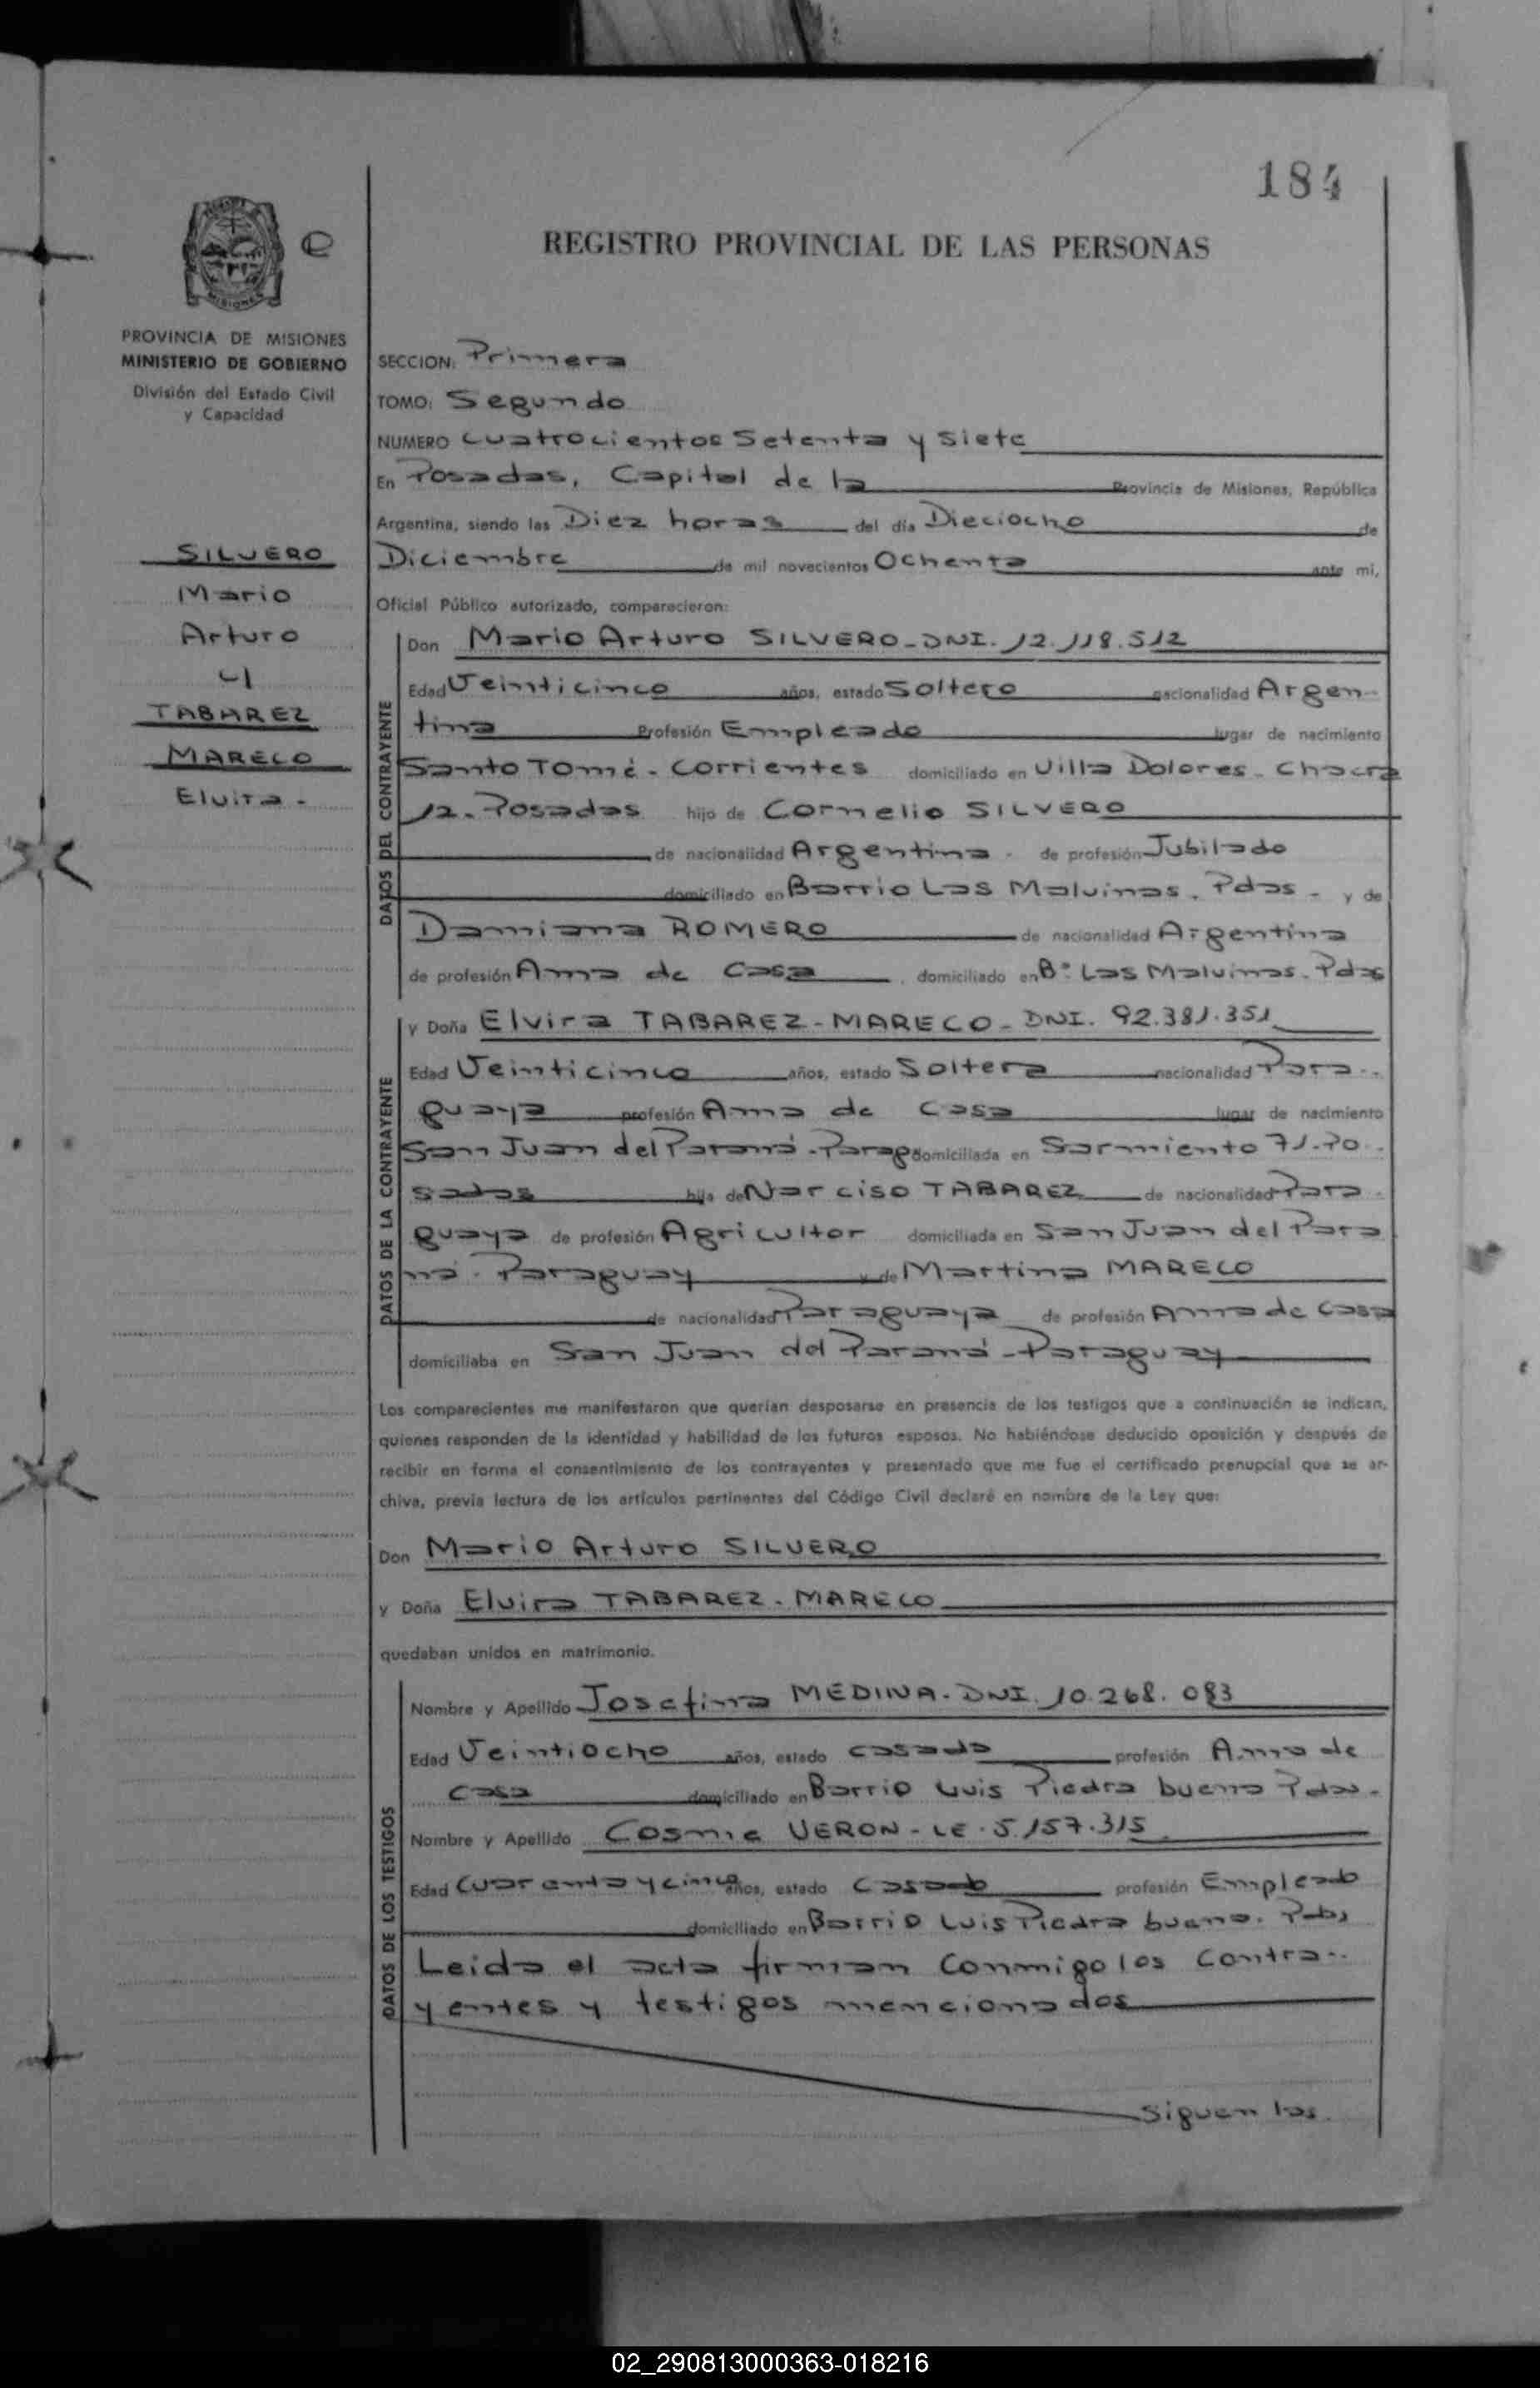 184
REGISTRO PROVINCIAL DE LAS PERSONAS
MISIONES
e
PROVINCIA DE MISIONES
MINISTERIO DE GOBIERNO
División del Estado Civil
y Capacidad
SILVERO
Mario
Arturo
y
TABAREZ
MARECO
Elvira.-
SECCION: Primera
TOMO: Segundo
NUMERO cuatrocientos Setenta y Siete
En Posadas, Capital de la Provincia de Misiones, República
Argentina, siendo las Diez horas del día Dieciocho de
Diciembre de mil novecientos Ochenta ante mi,
Oficial Público autorizado, comparecieron:
DATOS DEL CONTRAYENTE
Don Mario Arturo SILVERO-DNI. 12.118.512
Edad Veinticinco años, estado Soltero nacionalidad Argen-
tina Profesión Empleado lugar de nacimiento
Santo Tomé - Corrientes domiciliado en Villa Dolores - Chacra
12. Posadas hijo de Cornelio SILVERO
de nacionalidad Argentina - de profesión Jubilado
domiciliado en Barrio Las Malvinas. Pdas - y de
Damiana ROMERO de nacionalidad Argentina
de profesión Ama de Casa domiciliado en B° Las Malvinas. Pdas
DATOS DE LA CONTRAYENTE
y Doña Elvira TABAREZ-MARECO-DNI. 92.381.351
Edad Veinticinco años, estado Soltera nacionalidad Para-
guaya profesión Ama de Casa lugar de nacimiento
San Juan del Paraná-Parag domiciliada en Sarmiento 71-Po-
sadas hija de Narciso TABAREZ de nacionalidad Para-
guaya de profesión Agricultor domiciliada en San Juan del Para
ná - Paraguay y de Martina MARECO
de nacionalidad Paraguaya de profesión Ama de Casa
domiciliaba en San Juan del Paraná-Paraguay
Los comparecientes me manifestaron que querían desposarse en presencia de los testigos que a continuación se indican,
quienes responden de la identidad y habilidad de los futuros esposos. No habiéndose deducido oposición y después de
recibir en forma el consentimiento de los contrayentes y presentado que me fue el certificado prenupcial que se ar-
chiva, previa lectura de los artículos pertinentes del Código Civil declaré en nombre de la Ley que:
Don Mario Arturo SILVERO
y Doña Elvira TABAREZ-MARECO
quedaban unidos en matrimonio.
DATOS DE LOS TESTIGOS
Nombre y Apellido Josefina MEDINA-DNI. 10.268.083
Edad Veintiocho años, estado casada profesión Ama de
Casa domiciliado en Barrio Luis Piedra buena Pdas-
Nombre y Apellido Cosme VERON-LE. 5.157.315
Edad Cuarenta y cinco años, estado Casado profesión Empleado
domiciliado en Barrio Luis Piedra buena. Pdas
Leida el acta firman conmigo los contra-
yentes y testigos mencionados
siguen las
02_290813000363-018216